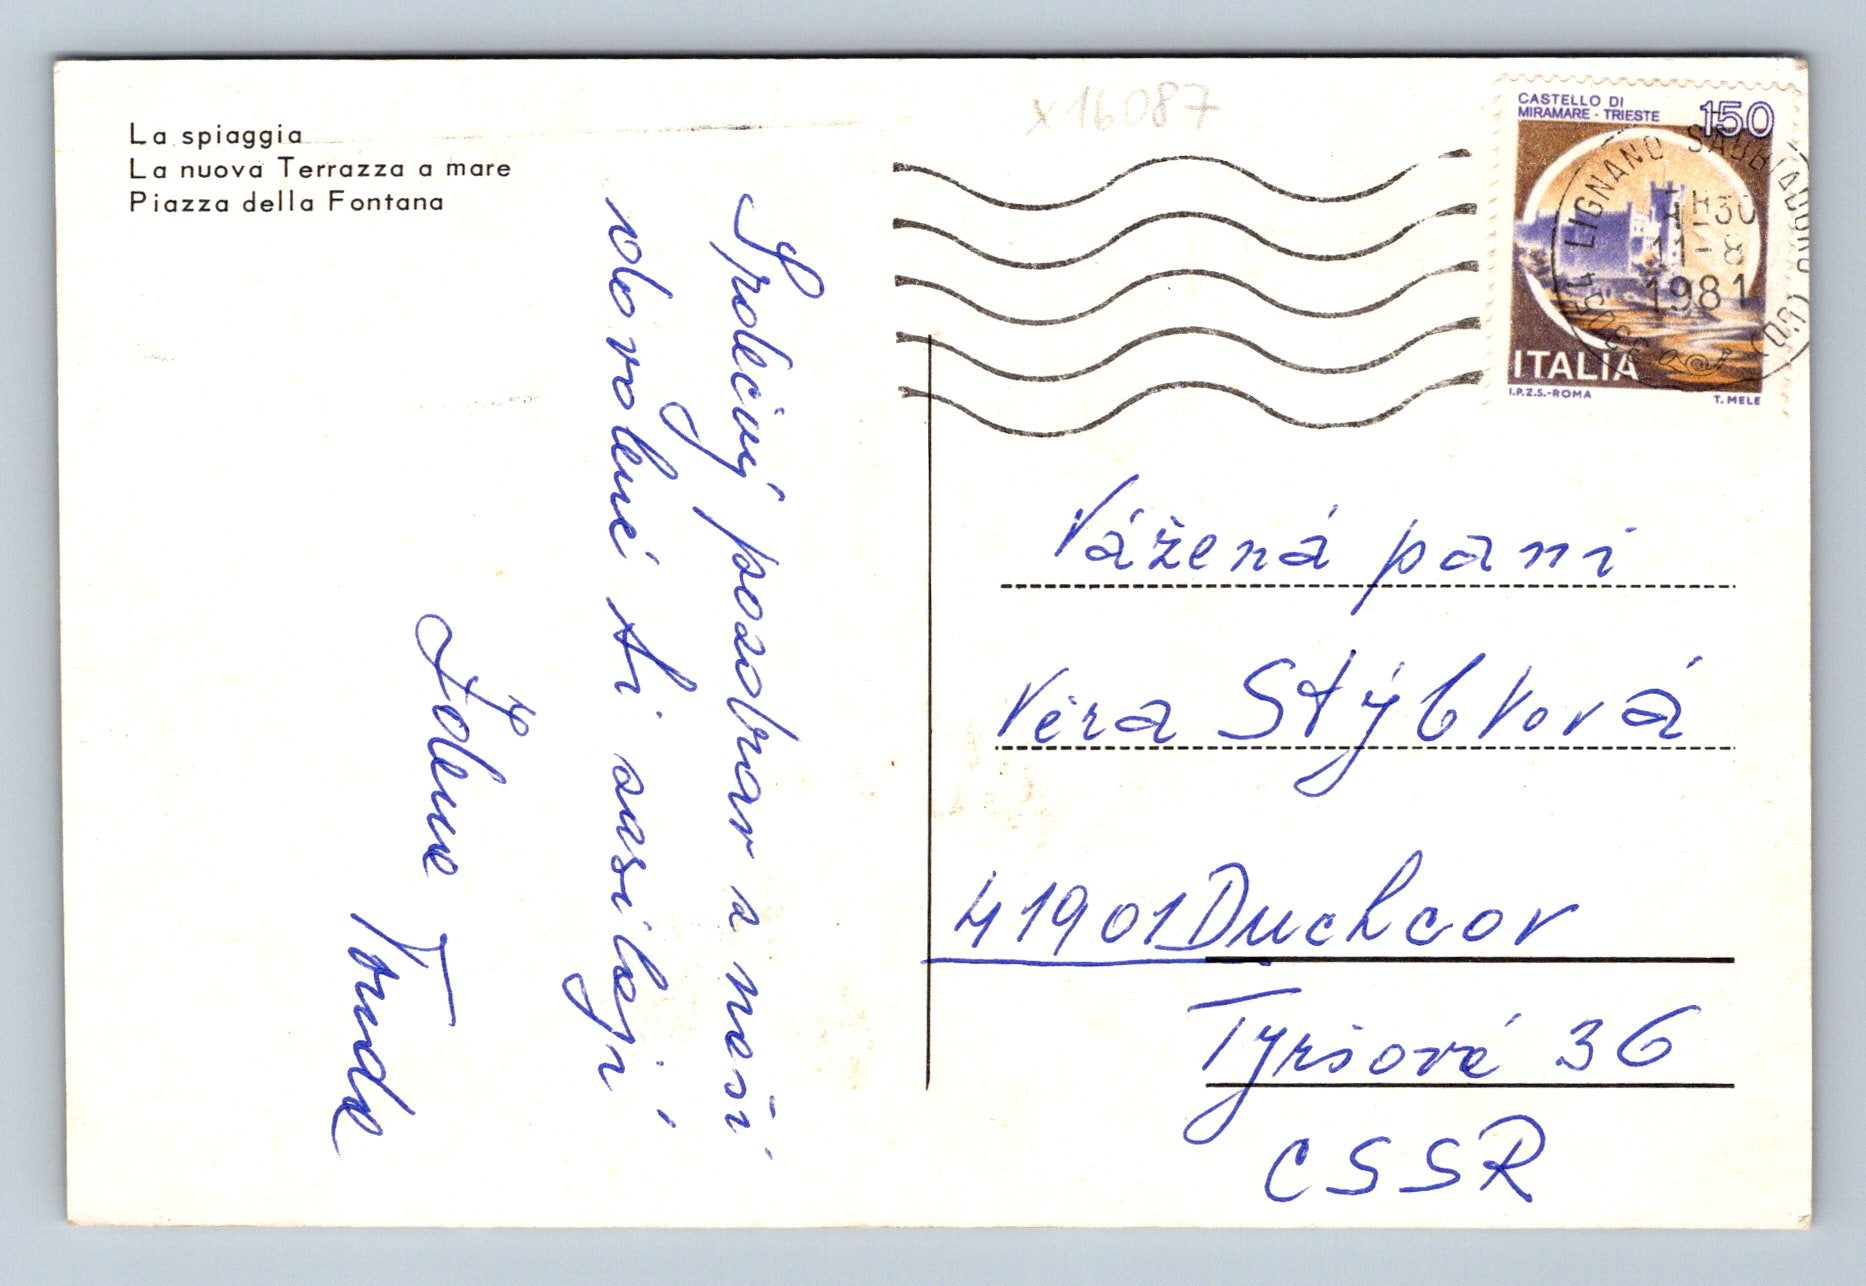 La spiaggia
La nuova Terrazza a mare
Piazza della Fontana
x16087
CASTELLO DI
MIRAMARE - TRIESTE
150
ITALIA
I.P.Z.S.-ROMA
T. MELE
LIGNANO SABBIADORO (UD)
1981
Srdečný pozdrav z naší
dovolené ti zasílají
Zdena Tonda
Vážená paní
Věra Stýblová
41901 Duchcov
Tyršová 36
CSSR